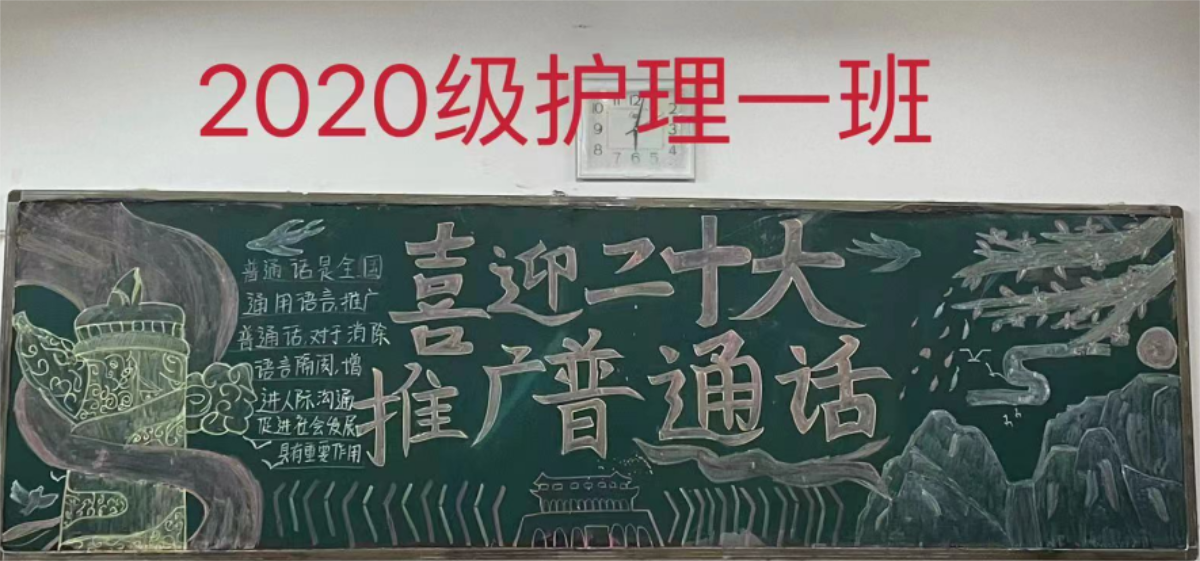 2020级护理一班
喜迎二十大
推广普通话
普通话是全国
通用语言,推广
普通话,对于消除
语言隔阂,增
进人际沟通
促进社会发展
具有重要作用
10 11 12 2
9 3
8 7 6 5 4